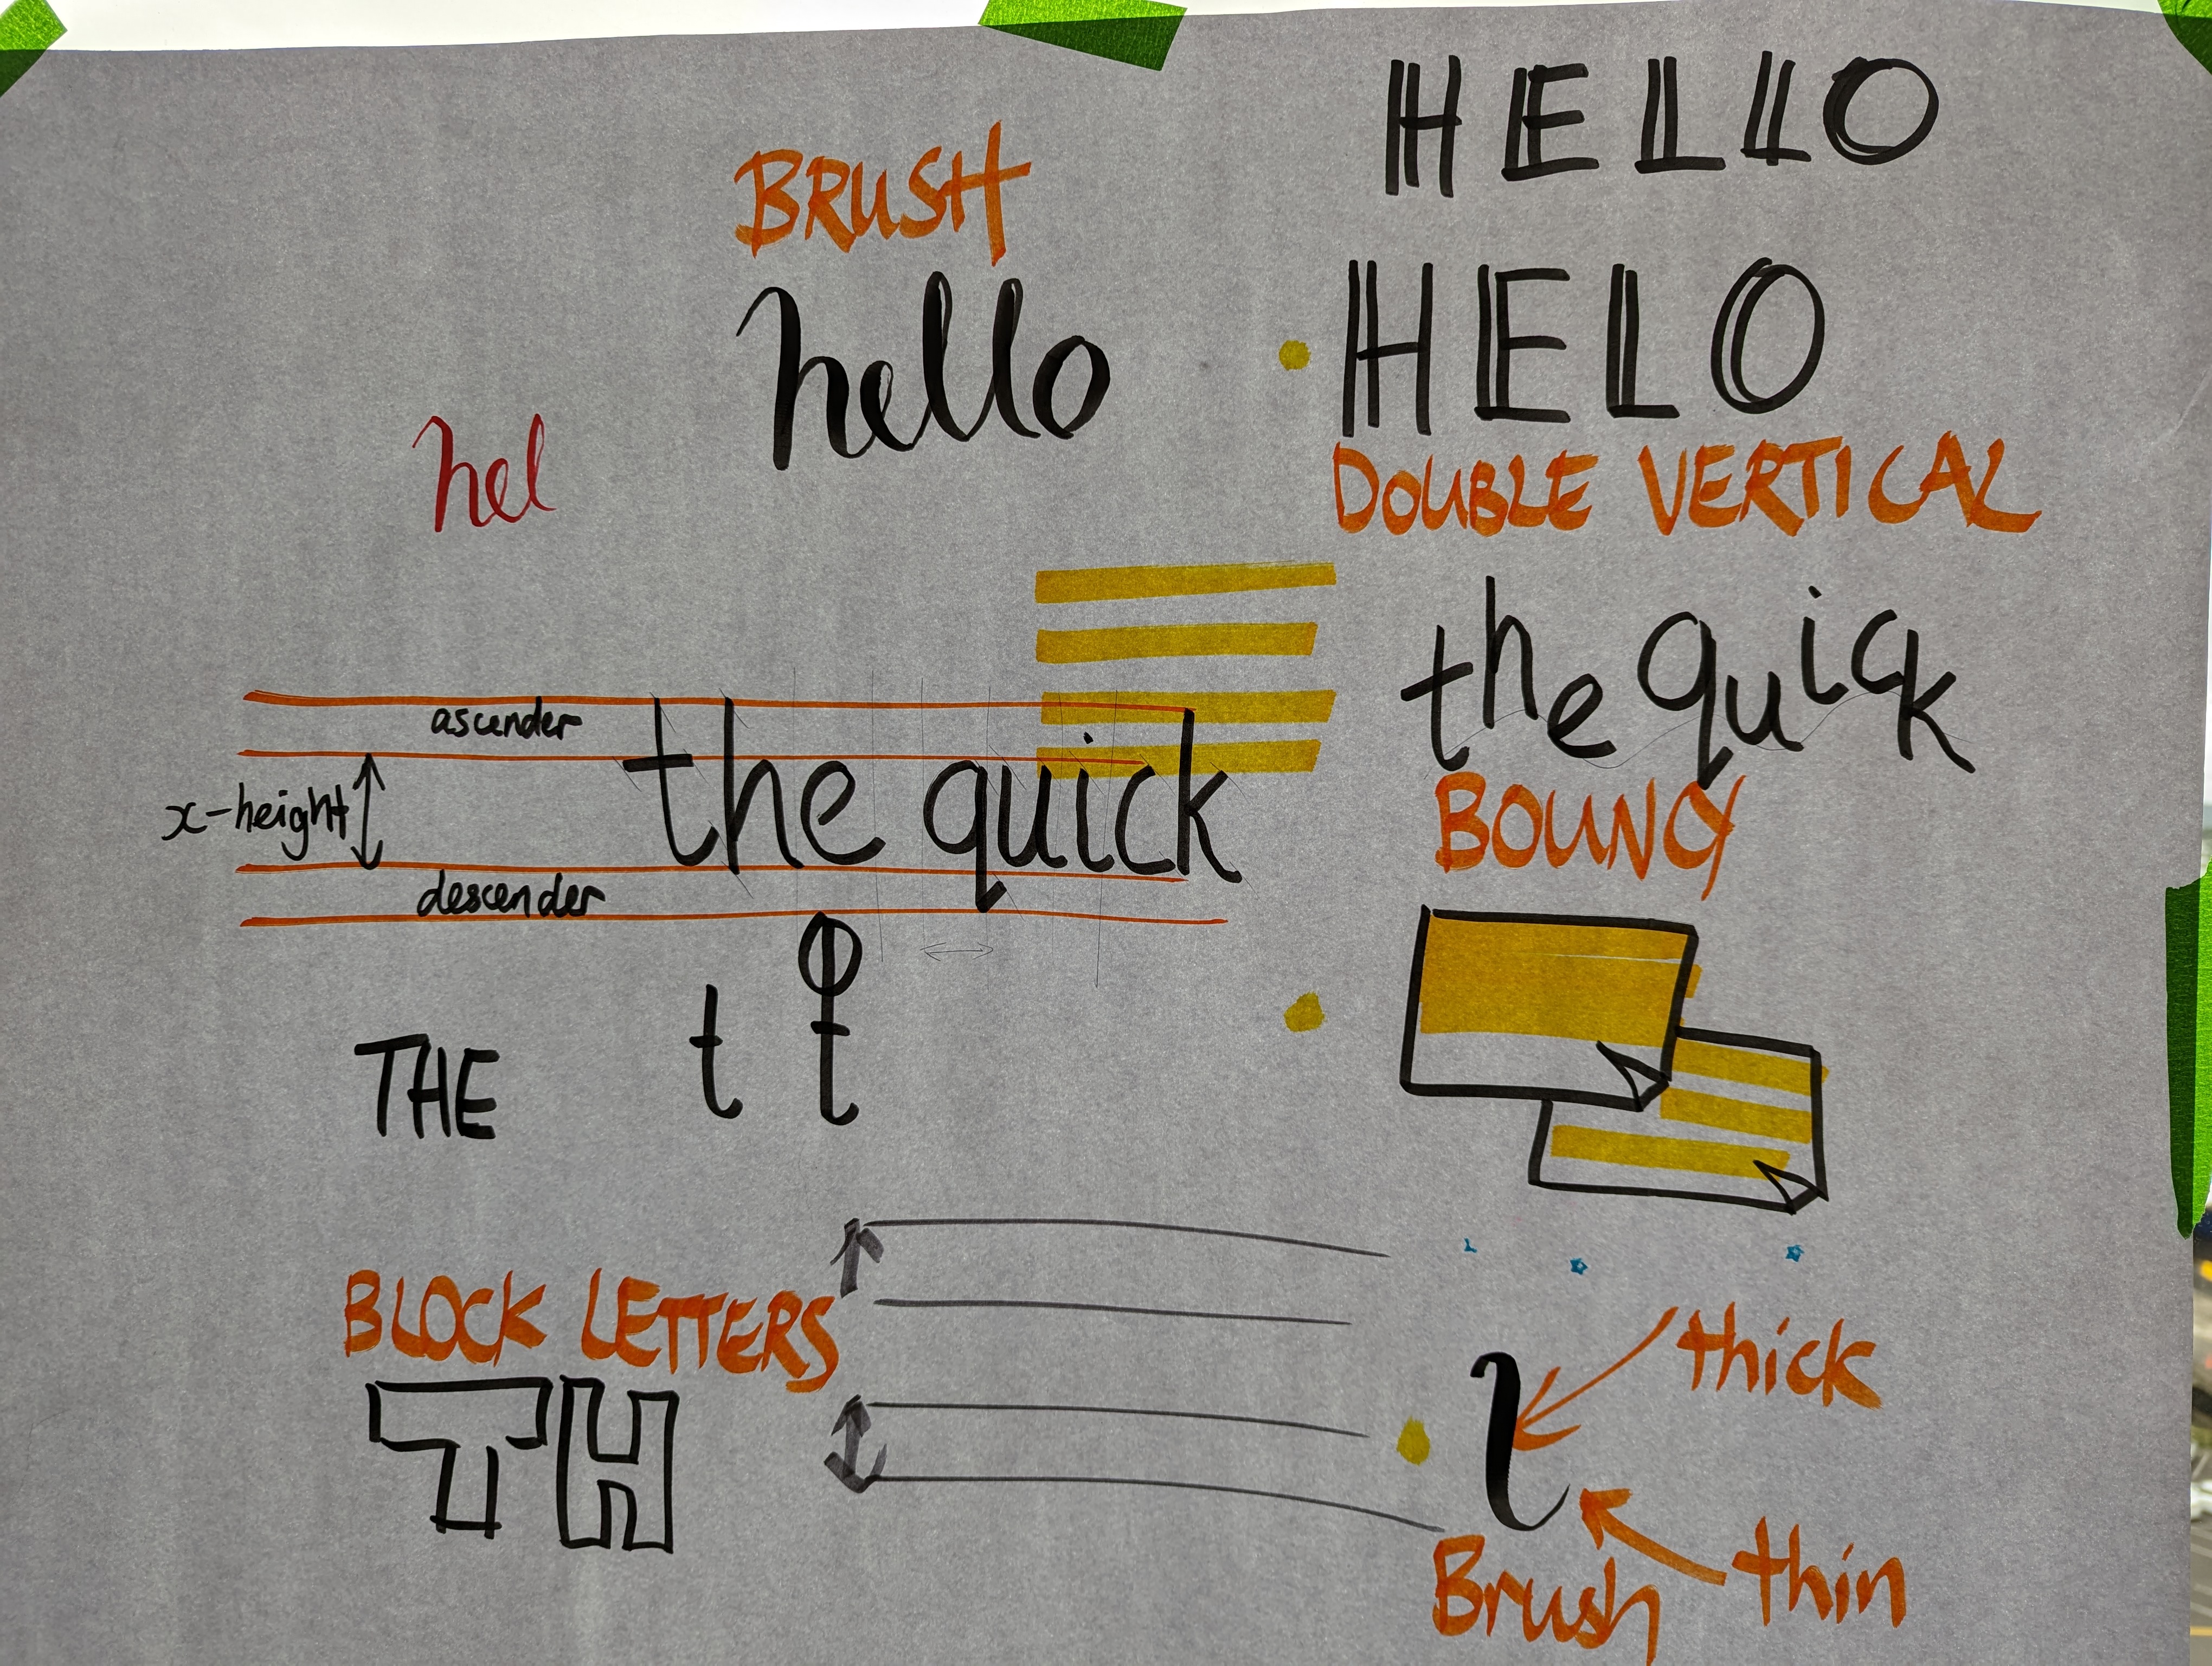 HELLO
BRUSH
hello
HELO
hel
DOUBLE VERTICAL
the quick
ascender
the quick
x-height
BOUNCY
descender
t t
THE
BLOCK LETTERS
TH
thick
l
thin
Brush